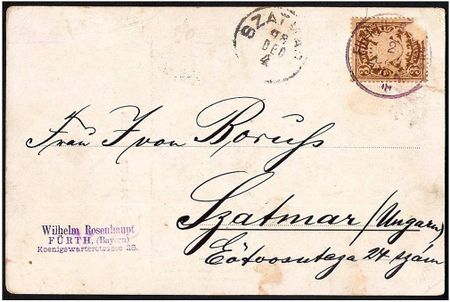 SZATMÁR
98
DEC
4
3
3
Frau J von Boruss
Szatmar (Ungarn)
Eötvösutcza 24 szám
Wilhelm Rosenhaupt
FÜRTH, (Bayern)
Koenigswarterstrasse 28.